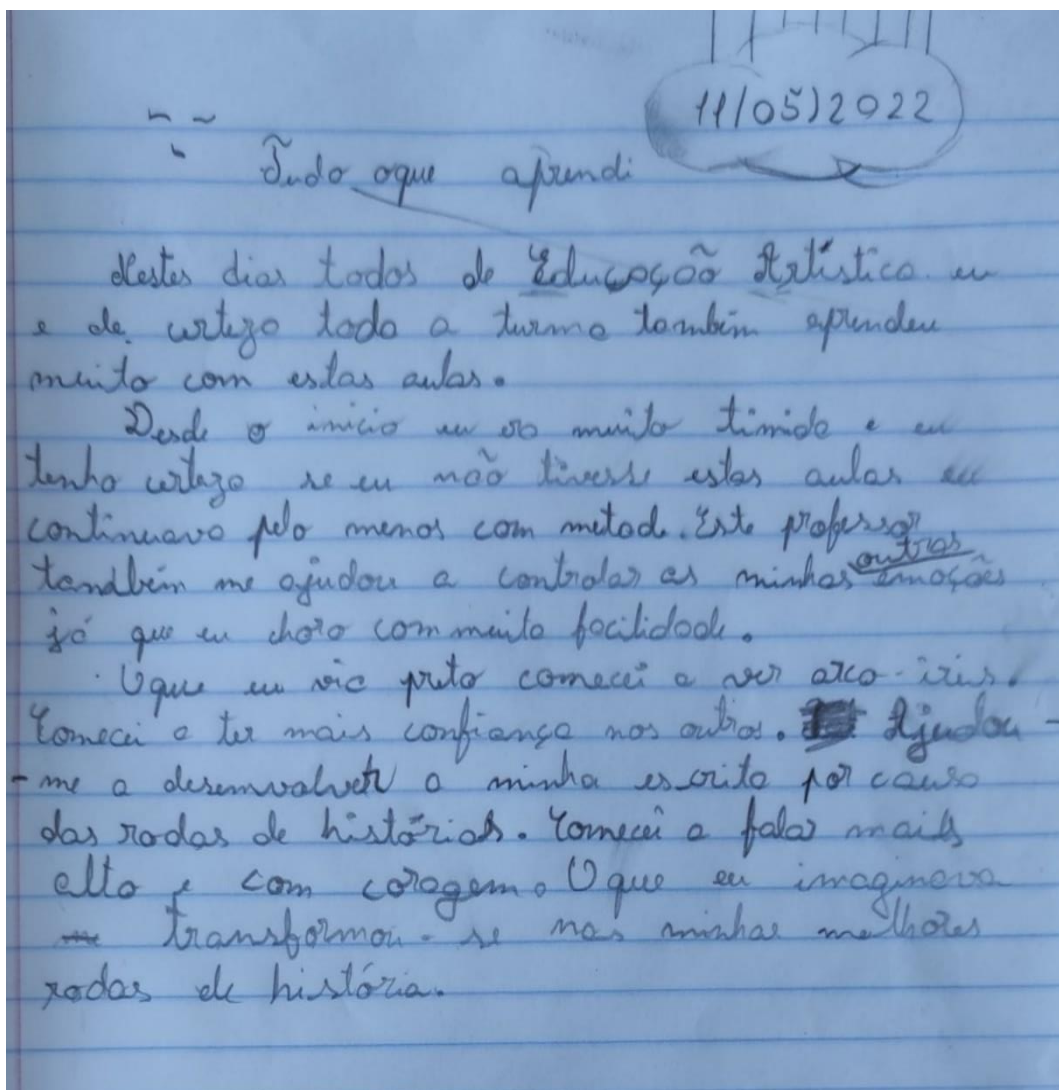 11/05/2022
Tudo oque aprendi
Nestes dias todos de Educação Artística eu
e de certeza toda a turma também aprendeu
muito com estas aulas.
Desde o início eu era muito timida e eu
tenho certeza se eu não tivesse estas aulas eu
continuava pelo menos com metade. Este professor
tambbém me ajudou a controlar as minhas outras emoções
já que eu choro com muita facilidade.
Oque eu via preto comecei a ver arco-iris.
Comecei a ter mais confiança nos outros. Ajudou-
-me a desenvolver a minha escrita por causa
das rodas de histórias. Comecei a falar mais
alto e com coragem. O que eu imaginava
transformou-se nas minhas melhores
rodas de história.